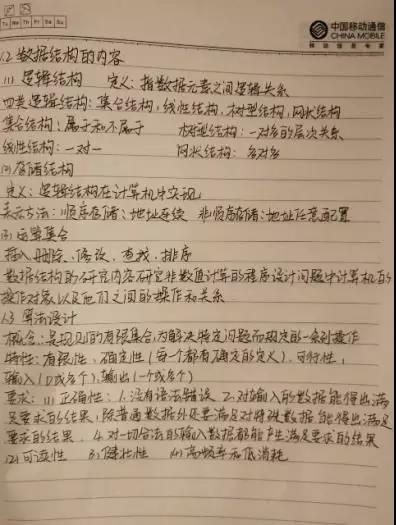 Tu We Th Fr Sa Su
中国移动通信
CHINA MOBILE
移动信息专家
1.2 数据结构的内容
(1) 逻辑结构 定义:指数据元素之间逻辑关系
四类逻辑结构:集合结构,线性结构,树型结构,网状结构
集合结构:属于和不属于 树型结构:一对多的层次关系
线性结构:一对一 网状结构:多对多
(2) 存储结构
定义:逻辑结构在计算机中实现
表示方法:顺序存储:地址连续 非顺序存储:地址任意配置
(3) 运算集合
插入、删除、修改、查找、排序
数据结构的研究内容研究非数值计算的程序设计问题中计算机的
操作对象以及他们之间的操作和关系
1.3 算法设计
概念:是规则的有限集合,为解决特定问题而规定的一系列操作
特性:有限性,确定性(每一个都有确定的定义),可行性,
输入(0或多个),输出(一个或多个)
要求:(1) 正确性:1.没有语法错误 2.对输入的数据能得出满
足要求的结果,除普通数据外还要满足对特殊数据能得出满足
要求的结果 4.对一切合法的输入数据都能产生满足要求的结果
(2) 可读性 (3) 健壮性 (4) 高频率和低消耗